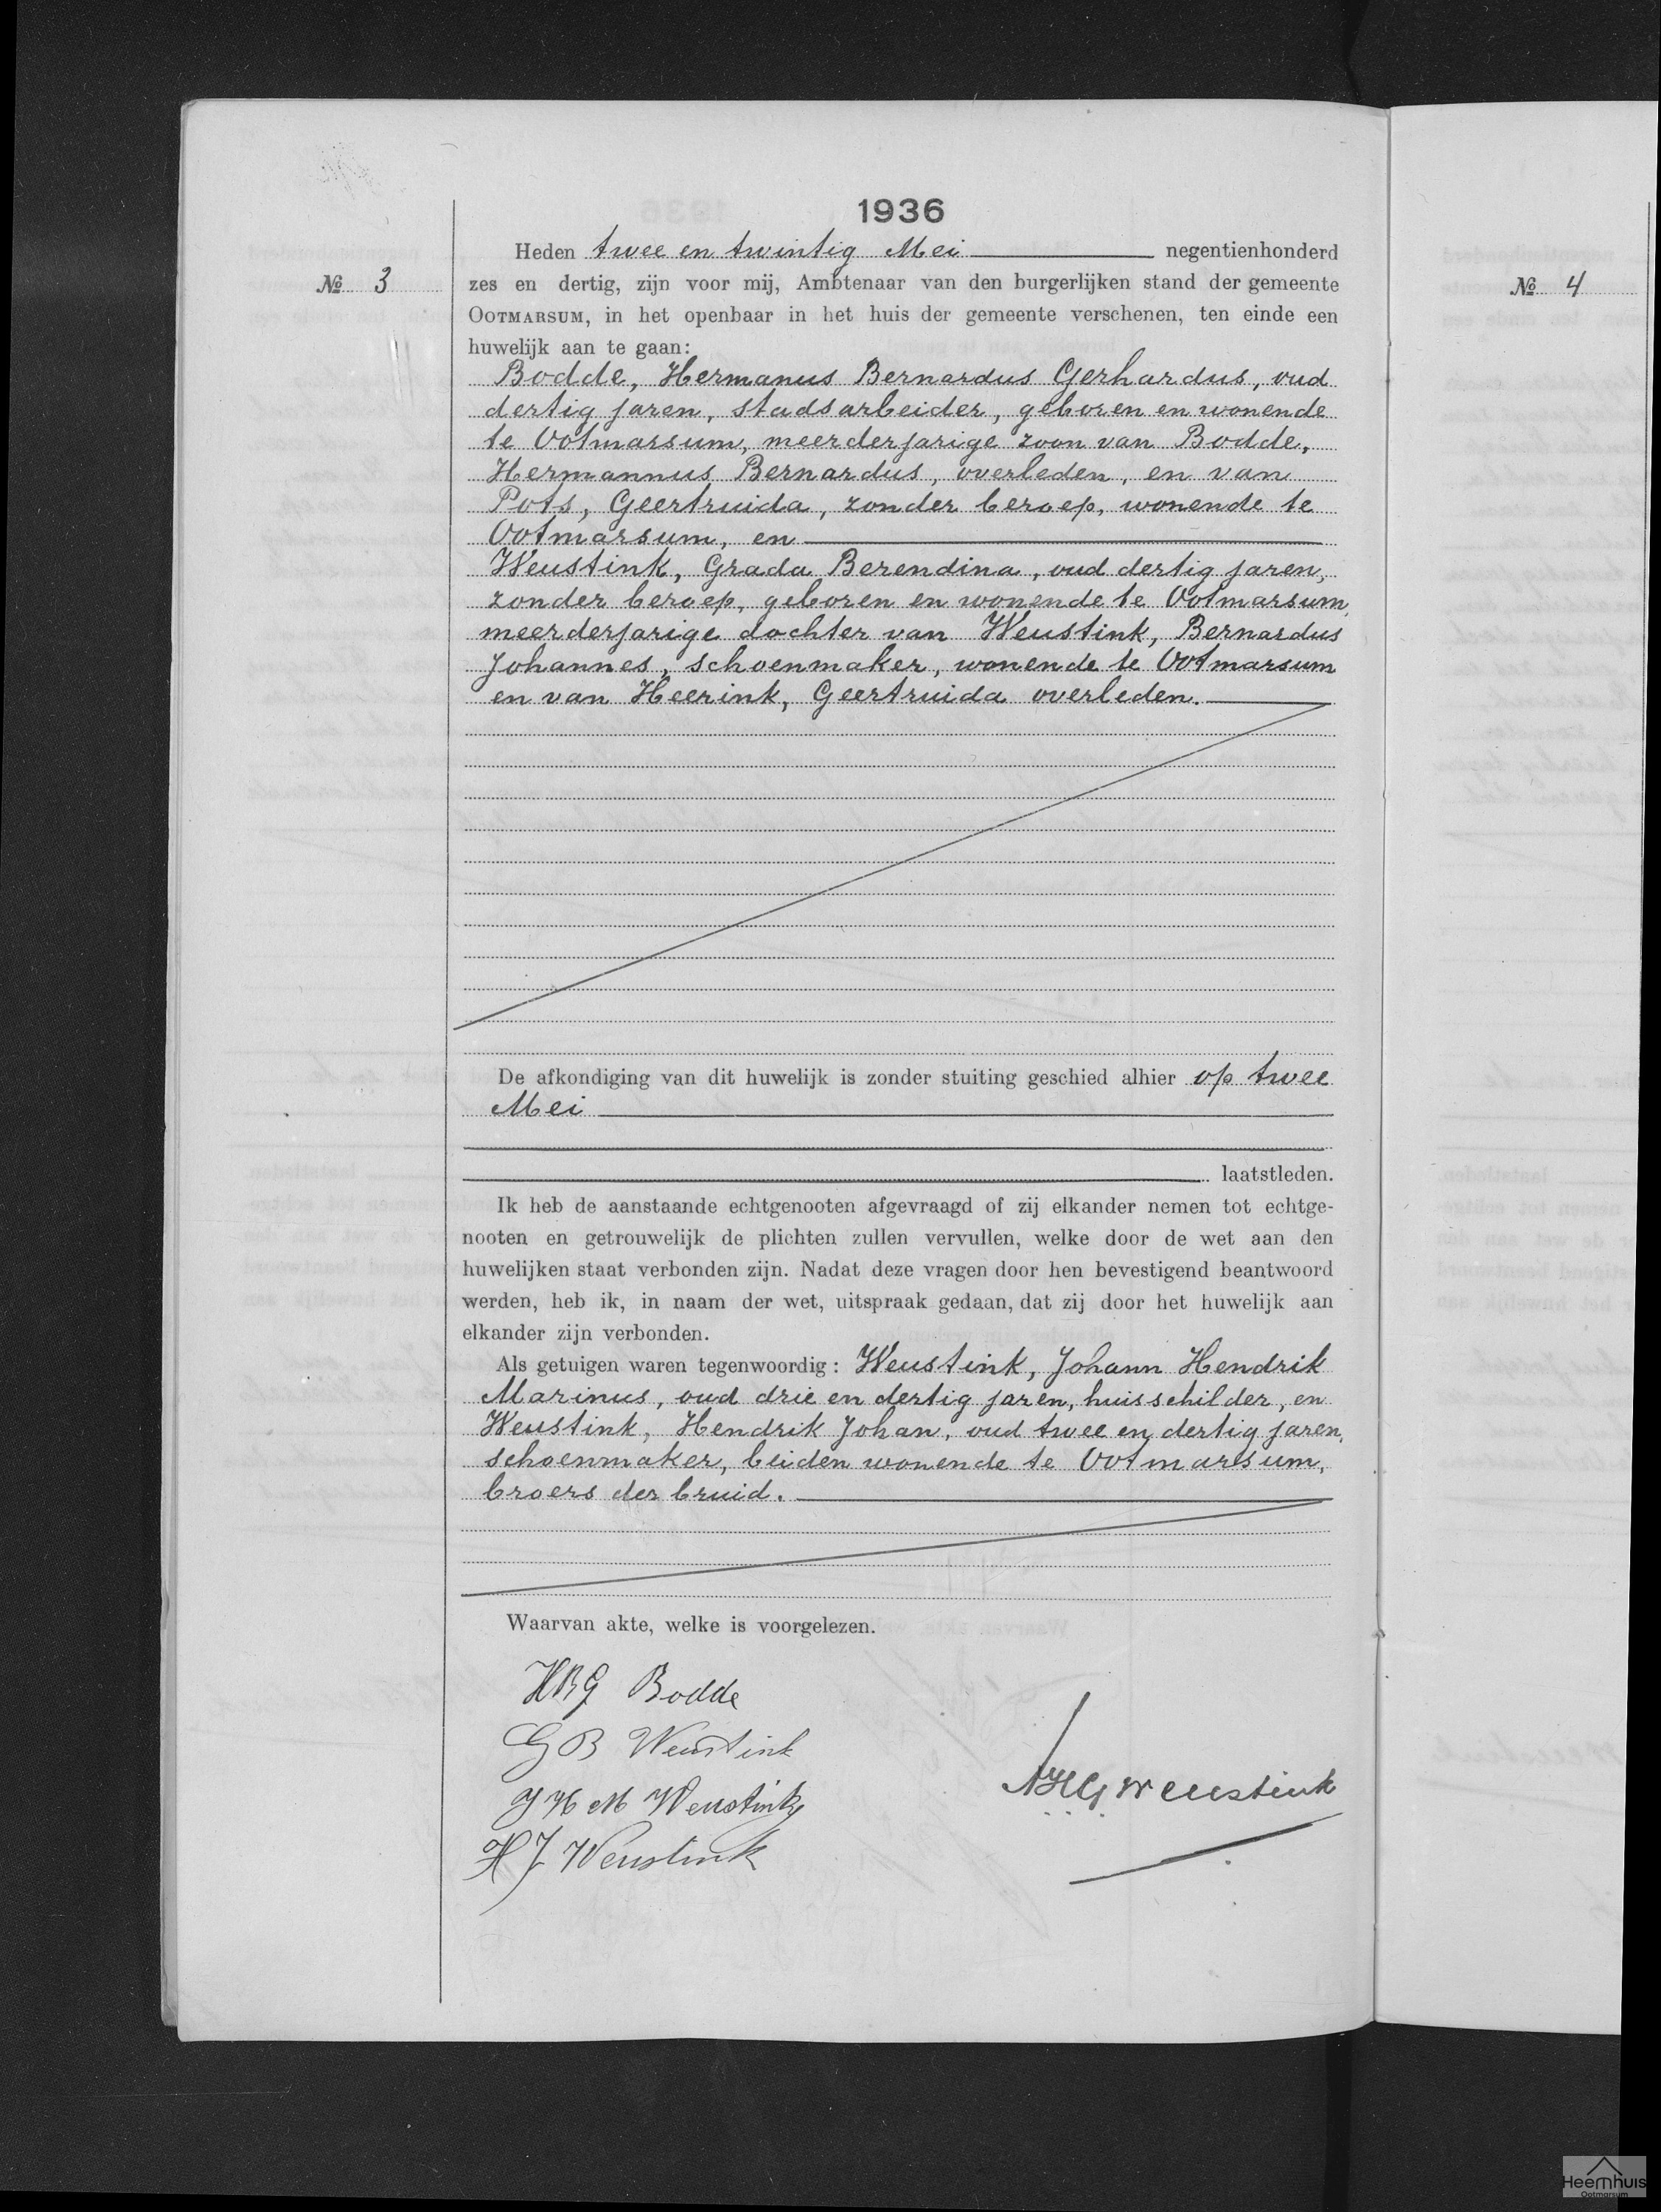 1936
Heden twee en twintig Mei negentienhonderd
No 3
zes en dertig, zijn voor mij, Ambtenaar van den burgerlijken stand der gemeente
OOTMARSUM, in het openbaar in het huis der gemeente verschenen, ten einde een
huwelijk aan te gaan:
Bodde, Hermanus Bernardus Gerhardus, oud
dertig jaren, stadsarbeider, geboren en wonende
te Ootmarsum, meerderjarige zoon van Bodde,
Hermannus Bernardus, overleden, en van
Pots, Geertruida, zonder beroep, wonende te
Ootmarsum, en
Weustink, Grada Berendina, oud dertig jaren,
zonder beroep, geboren en wonende te Ootmarsum,
meerderjarige dochter van Weustink, Bernardus
Johannes, schoenmaker, wonende te Ootmarsum
en van Heerink, Geertruida overleden.
De afkondiging van dit huwelijk is zonder stuiting geschied alhier op twee
Mei
laatstleden.
Ik heb de aanstaande echtgenooten afgevraagd of zij elkander nemen tot echtge-
nooten en getrouwelijk de plichten zullen vervullen, welke door de wet aan den
huwelijken staat verbonden zijn. Nadat deze vragen door hen bevestigend beantwoord
werden, heb ik, in naam der wet, uitspraak gedaan, dat zij door het huwelijk aan
elkander zijn verbonden.
Als getuigen waren tegenwoordig: Weustink, Johann Hendrik
Marinus, oud drie en dertig jaren, huisschilder, en
Weustink, Hendrik Johan, oud twee en dertig jaren,
schoenmaker, beiden wonende te Ootmarsum,
broers der bruid.
Waarvan akte, welke is voorgelezen.
HBG Bodde
GB Weustink
JHM Weustink
HJ Weustink
Weustink
No 4
Heemhuis
Ootmarsum